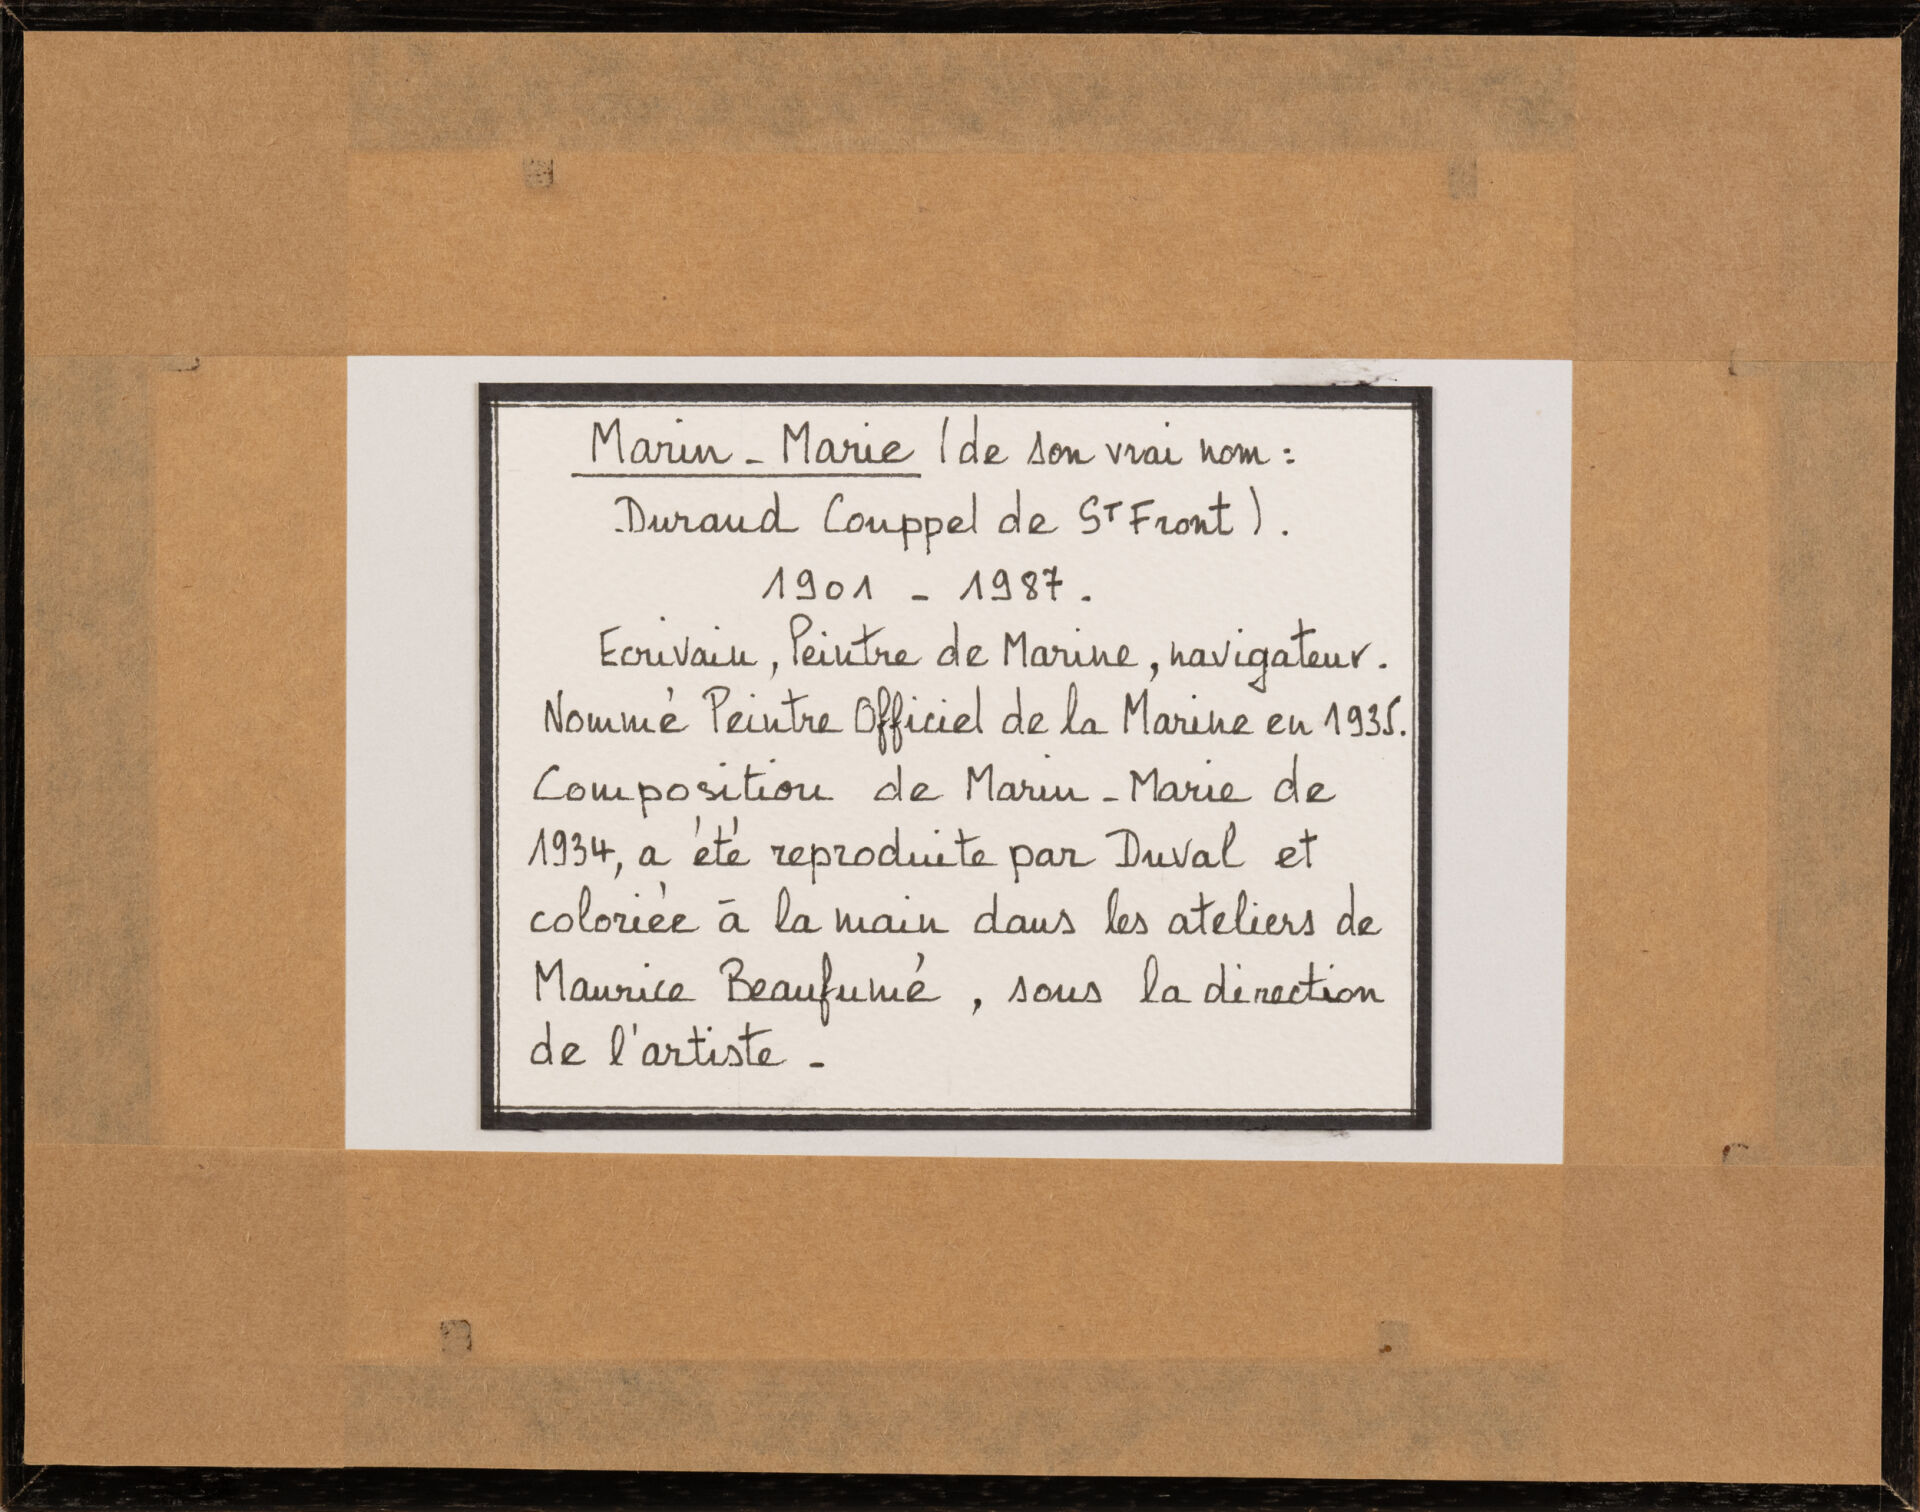 Marin - Marie (de son vrai nom :
Durand Couppel de St Front).
1901 - 1987.
Ecrivain, Peintre de Marine, navigateur.
Nommé Peintre Officiel de la Marine en 1935.
Composition de Marin - Marie de
1934, a été reproduite par Duval et
coloriée à la main dans les ateliers de
Maurice Beaufumé, sous la direction
de l'artiste -